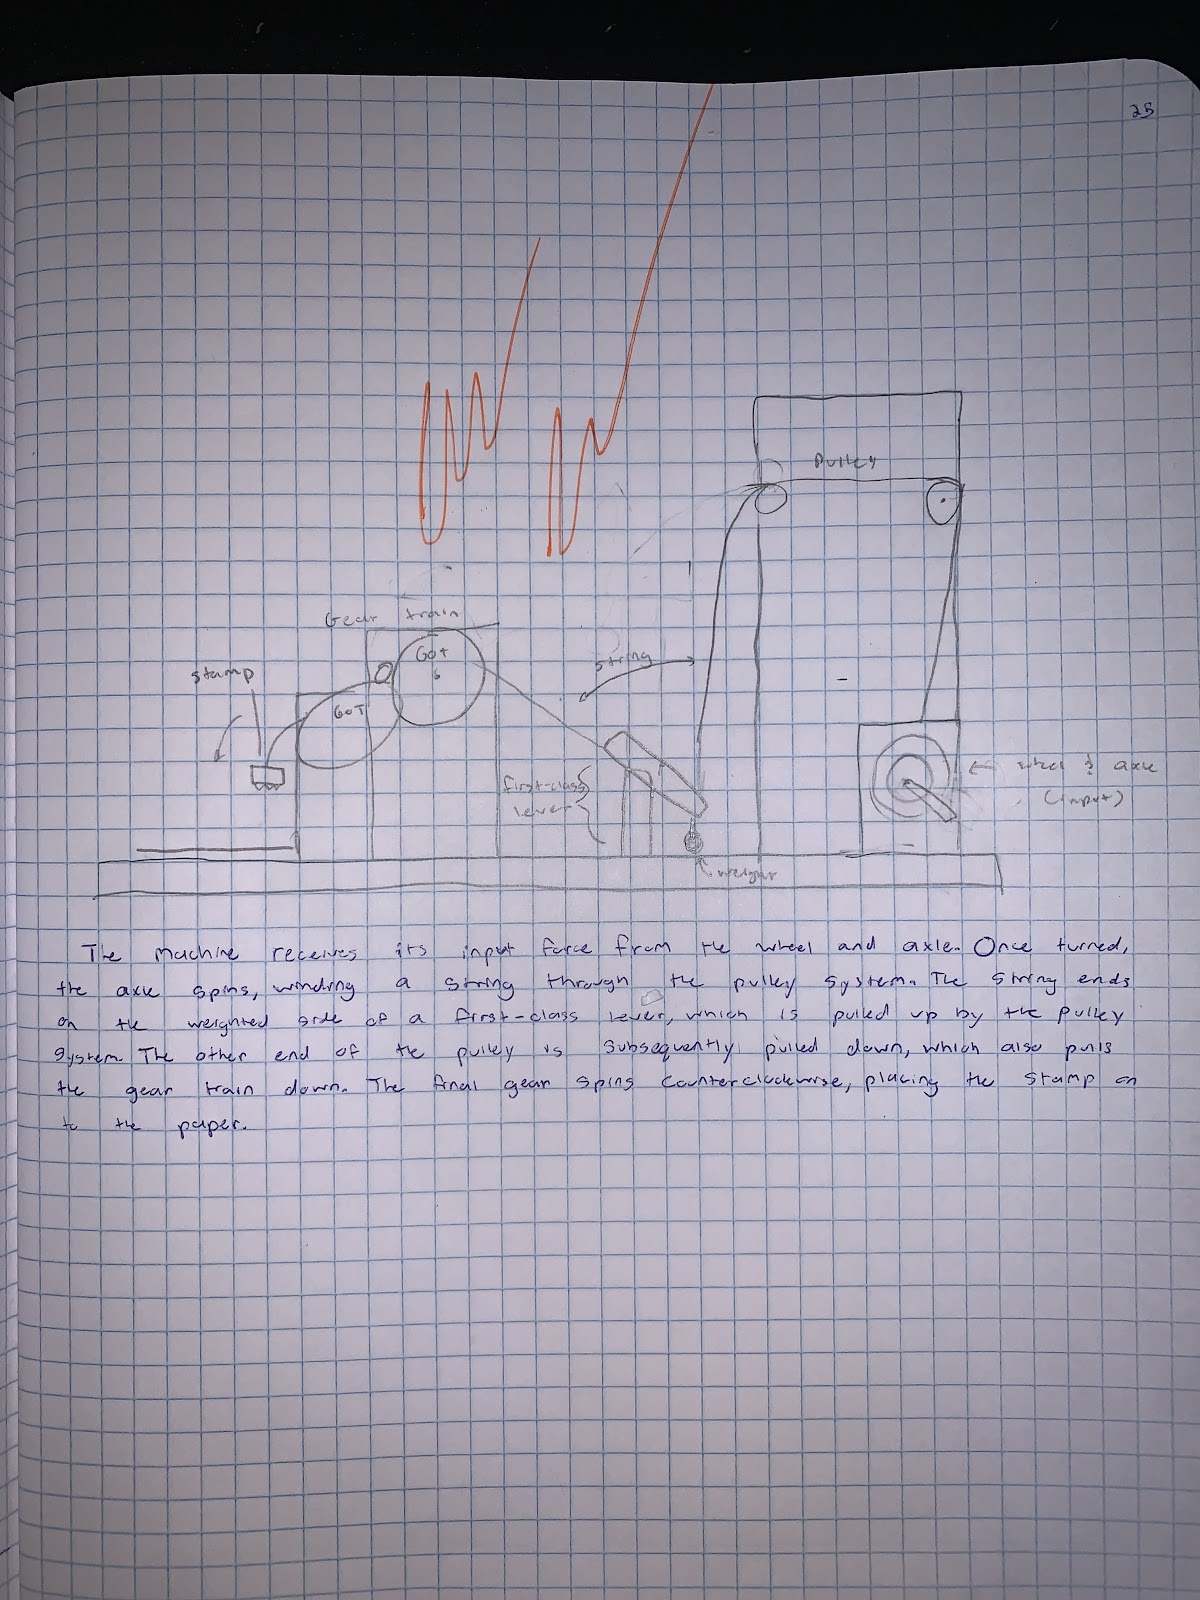 25
Pulley
Gear train
60T
stamp
string
60T
first-class
lever
wheel & axle
(input)
weight
The machine receives its input force from the wheel and axle. Once turned,
the axle spins, winding a string through the pulley system. The string ends
on the weighted side of a first-class lever, which is pulled up by the pulley
system. The other end of the pulley is subsequently pulled down, which also pulls
the gear train down. The final gear spins counterclockwise, placing the stamp on
to the paper.